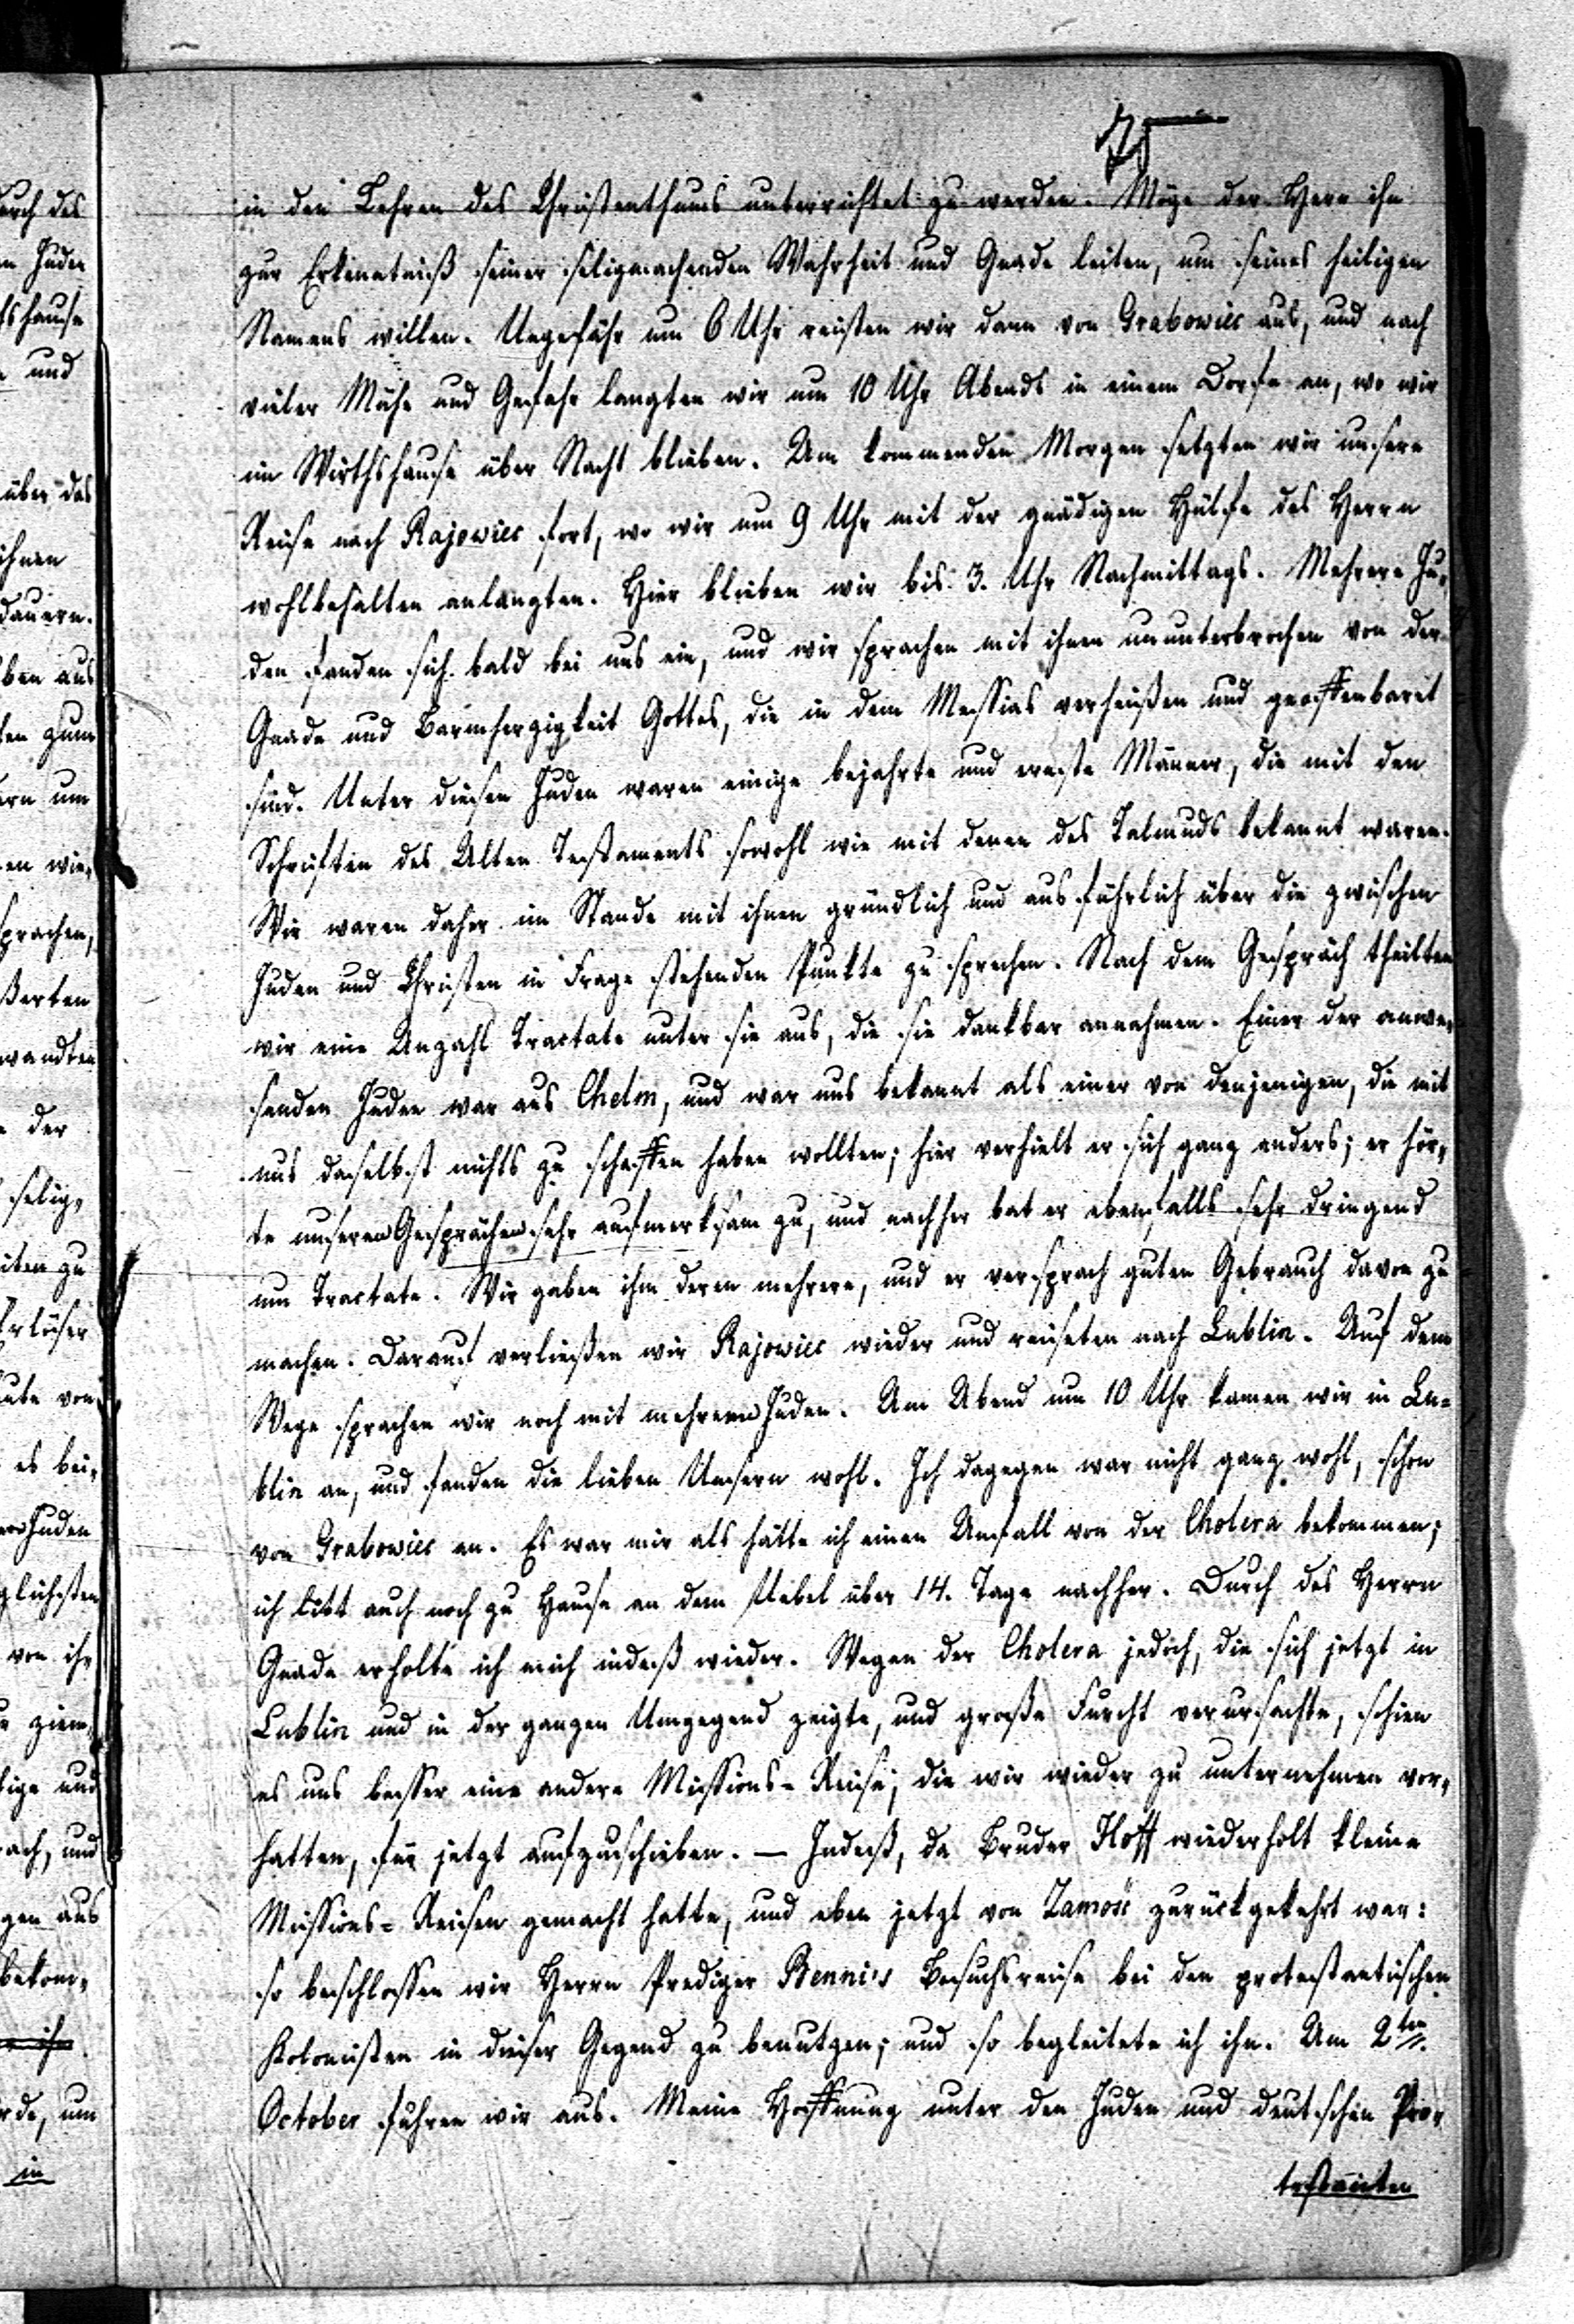 in den Lehren des Christenthums unterrichtet zu werden. Möge der Herr ihn
zur Erkenntniß seiner seligmachenden Wahrheit und Gnade leiten, um seines heiligen
Namens willen. Ungefähr um 6 Uhr reisten wir dann von Grabowiec aus, und nach
vieler Mühe und Gefahr langten wir um 10 Uhr Abends in einem Dorfe an, wo wir
im Wirthshause über Nacht blieben. Am kommenden Morgen setzten wir unsere
Reise nach Rajowiec fort, wo wir um 9 Uhr mit der gnädigen Hülfe des Herrn
wohlbehalten anlangten. Hier blieben wir bis 3. Uhr Nachmittags. Mehrere Ju-
den fanden sich bald bei uns ein, und wir sprachen mit ihnen ununterbrochen von der
Gnade und Barmherzigkeit Gottes, die in dem Messias verheißen und geoffenbaret
sind. Unter diesen Juden waren einige bejahrte und ernste Männer, die mit den
Schriften des Alten Testaments sowohl wie mit denen des Talmuds bekannt waren.
Wir waren daher im Stande mit ihnen gründlich und ausführlich über die zwischen
Juden und Christen in Frage stehenden Punkte zu sprechen. Nach dem Gespräch theilten
wir eine Anzahl Tractate unter sie aus, die sie dankbar annahmen. Einer der anwe-
senden Juden war aus Chelm, und war uns bekannt als einer von denjenigen, die mit
uns daselbst nichts zu schaffen haben wollten; hier verhielt er sich ganz anders; er hör-
te unseren Gesprächen sehr aufmerksam zu, und nachher bat er ebenfalls sehr dringend
um Tractate. Wir gaben ihm deren mehrere, und er versprach guten Gebrauch davon zu
machen. Darauf verließen wir Rajowiec wieder und reiseten nach Lublin. Auf dem
Wege sprachen wir noch mit mehreren Juden. Am Abend um 10 Uhr kamen wir in Lu-
blin an, und fanden die lieben Unsern wohl. Ich dagegen war nicht ganz wohl, schon
von Grabowiec an. Es war mir als hätte ich einen Anfall von der Cholera bekommen;
ich litt auch noch zu Hause an dem Uebel über 14. Tage nachher. Durch des Herrn
Gnade erholte ich mich indeß wieder. Wegen der Cholera jedoch, die sich jetzt in
Lublin und in der ganzen Umgegend zeigte, und große Furcht verursachte, schien
es uns besser eine andere Missions-Reise, die wir wieder zu unternehmen vor-
hatten, für jetzt aufzuschieben. — Indeß, da Bruder Hoff wiederholt kleine
Missions-Reisen gemacht hatte, und eben jetzt von Zamość zurückgekehrt war:
so beschlossen wir Herrn Prediger Benni's Besuchsreise bei den protestantischen
Kolonisten in dieser Gegend zu benutzen; und so begleitete ich ihn. Am 2ten
October fuhren wir aus. Meine Hoffnung unter den Juden und deutschen Pro-
testanten